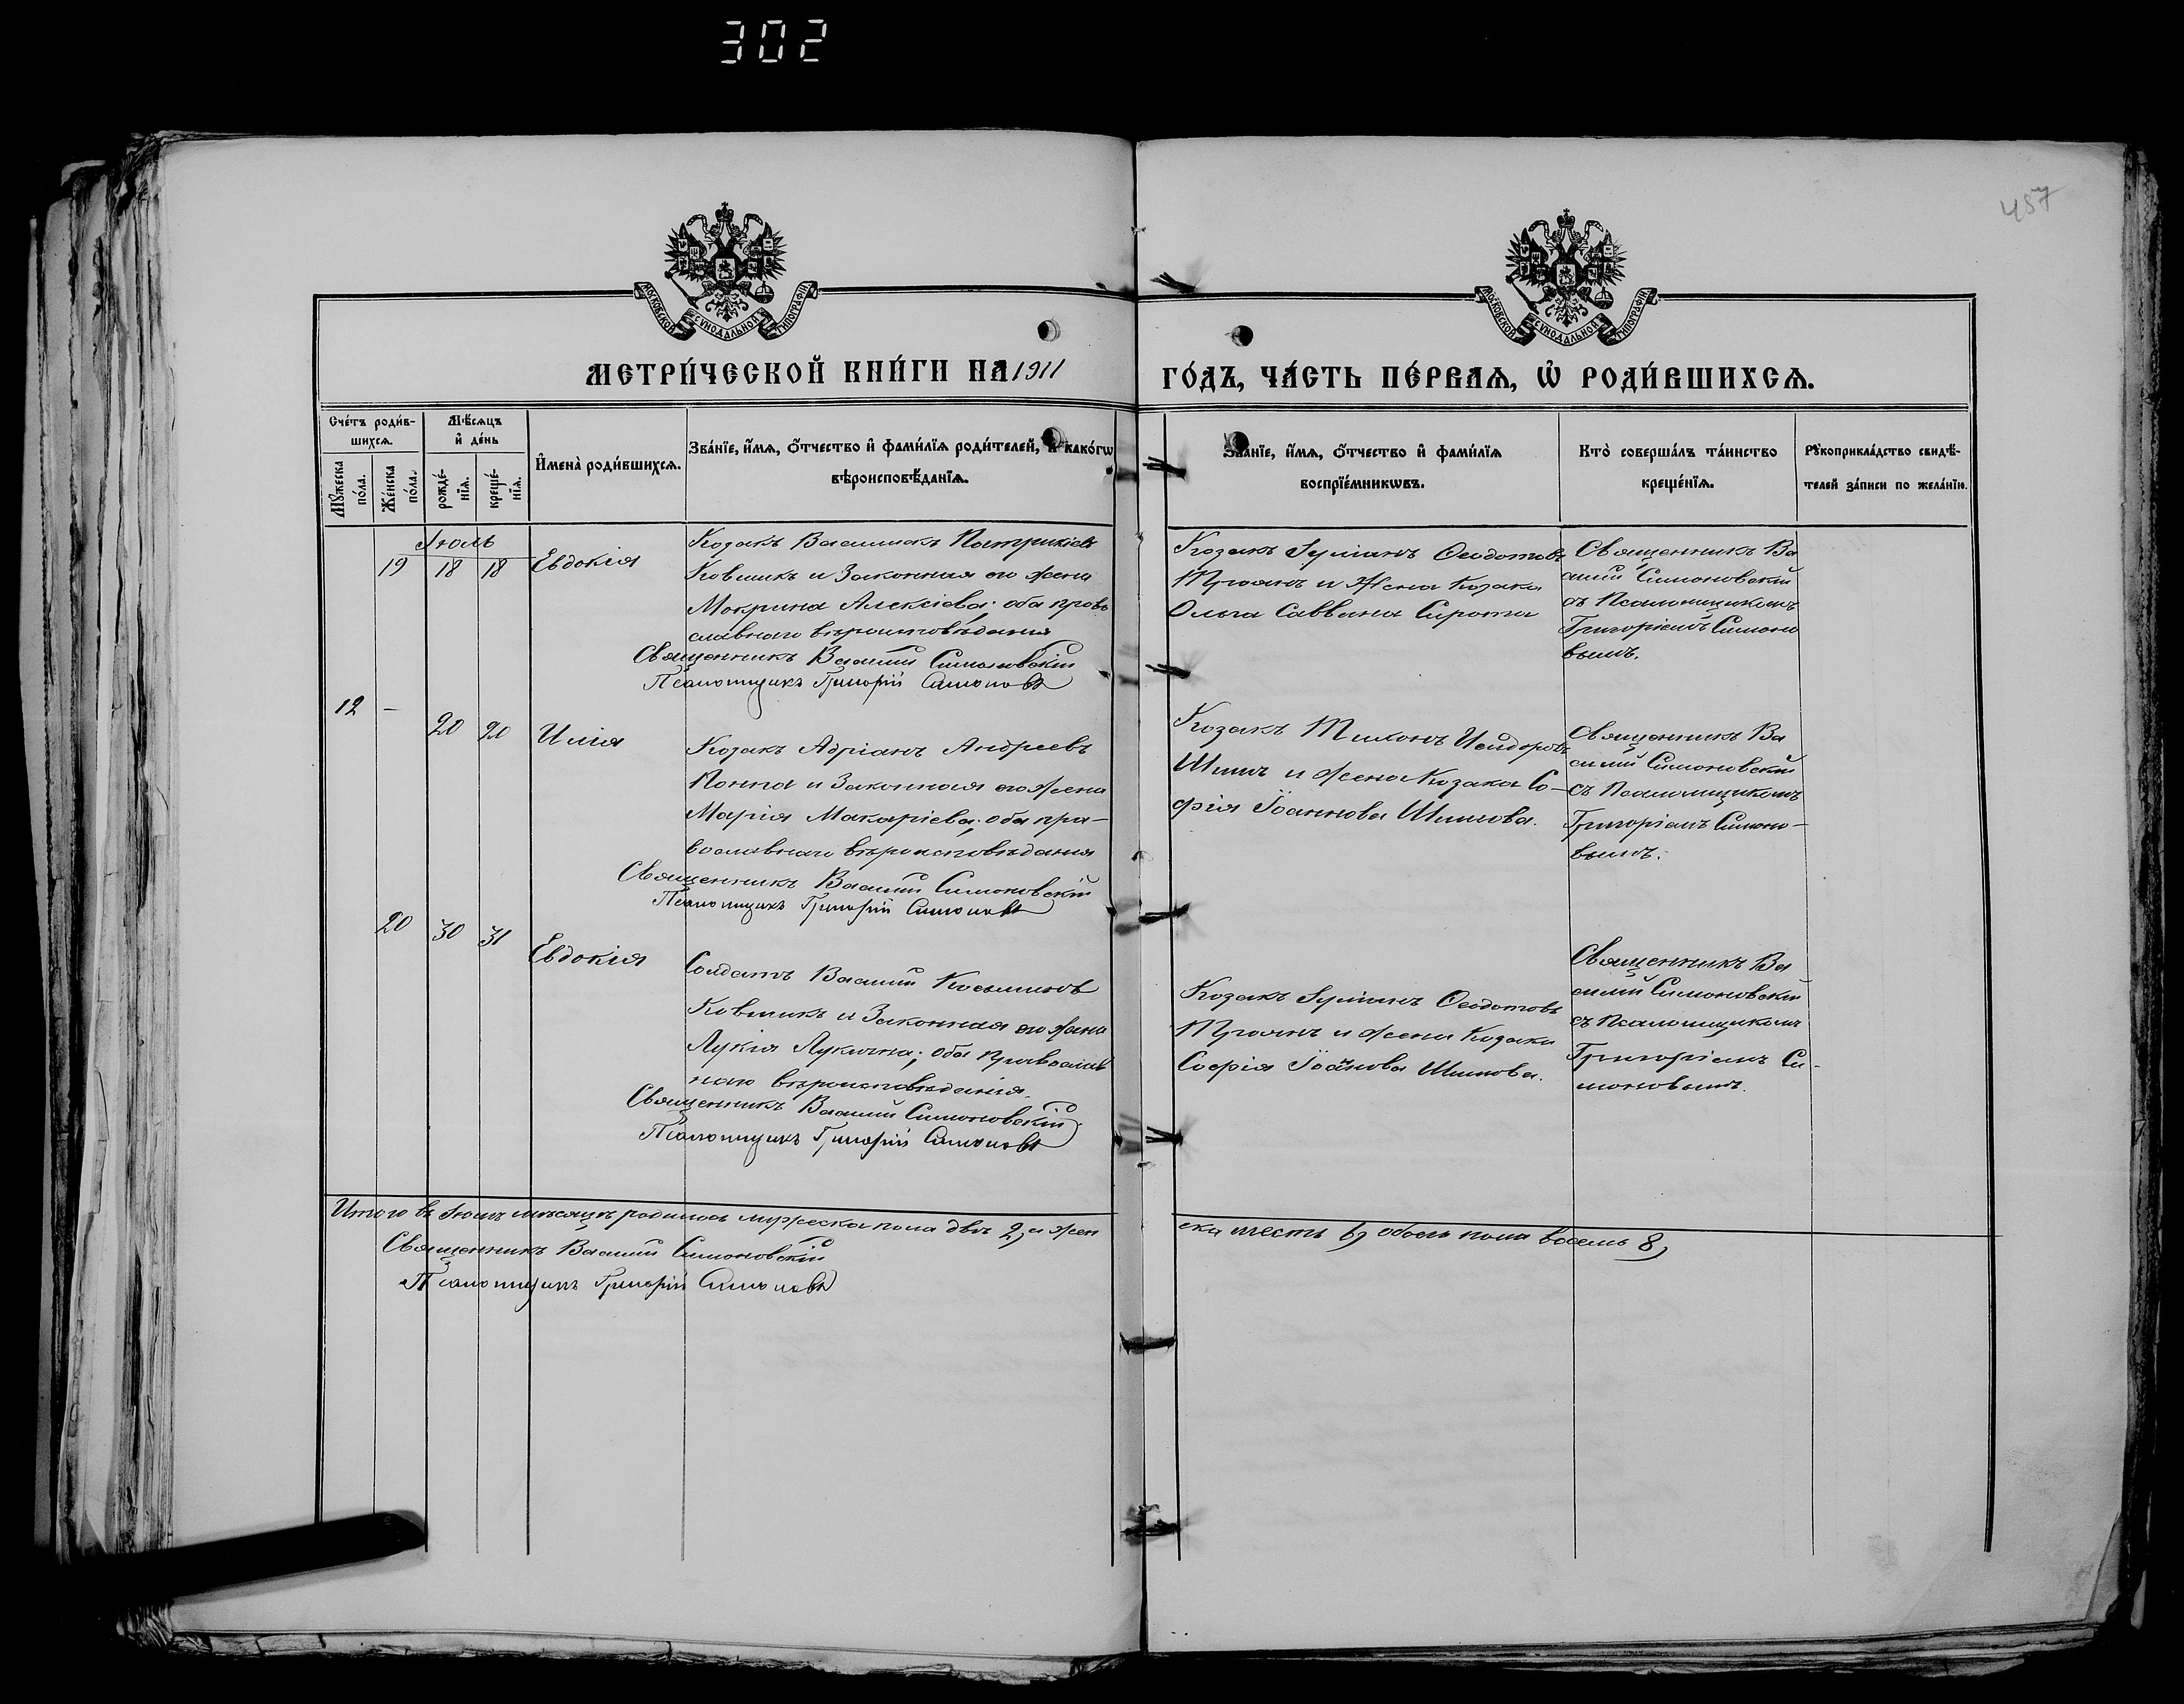 302
457
МОСКОВСКОЙ СѴНОДАЛЬНОЙ ТИПОГРАФІИ
МОСКОВСКОЙ СѴНОДАЛЬНОЙ ТИПОГРАФІИ
МЕТРИ́ЧЕСКОЙ КНИ́ГИ НА 1911
ГО́ДЪ, ЧА́СТЬ ПЕ́РВАѦ, Ѡ҆ РОДИ́ВШИХСѦ.
Сче́тъ роди́в-
шихсѧ.
Мѣ́сѧцъ
и҆ де́нь
Мꙋ́жеска
по́ла.
Же́нска
по́ла.
рожде́-
нїѧ.
креще́-
нїѧ.
И҆мена̀ роди́вшихсѧ.
Зва́нїе, и҆́мѧ, о҆́тчество и҆ фами́лїѧ роди́телей, и҆ како́гѡ
вѣроисповѣ́данїѧ.
Зва́нїе, и҆́мѧ, о҆́тчество и҆ фами́лїѧ
воспрїе́мникѡвъ.
Кто̀ соверша́лъ та́инство
креще́нїѧ.
Рꙋкоприкла́дство свидѣ́-
телей за́писи по жела́нїю.
Іюль
19 18 18 Евдокія
Козакъ Патрикіевъ
Ковшикъ и Законная его жена
Мокрина Алексіева; оба право
славнаго вѣроисповѣданія
Священникъ Василій Симоновскій
Псаломщикъ Григорій Симоновъ
Козакъ Ѳеодотовъ
Троянъ и Жена Козака
Ольга Саввина Сирота
Священникъ Ва
силій Симоновскій
съ Псаломщикомъ
Григоріемъ Симоно
вымъ.
12 – 20 20 Илія
Козакъ Адріанъ Андреевъ
и Законная его Жена
Марія Макаріева; оба пра-
вославнаго вѣроисповѣданія
Священникъ Василій Симоновскій
Псаломщикъ Григорій Симоновъ
Козакъ Тихонъ Исидоровъ
и Жена Козака Со-
фія Іоаннова
Священникъ Ва
силій Симоновскій
съ Псаломщикомъ
Григоріемъ Симоно-
вымъ.
20 30 31 Евдокія
Солдатъ Василій
Ковшикъ и Законная его Жена
Лукія Лукична; оба Православ
наго вѣроисповѣданія.
Священникъ Василій Симоновскій
Псаломщикъ Григорій Симоновъ
Козакъ Ѳеодотовъ
Троянъ и Жена Козака
Софія
Священникъ Ва
силій Симоновскій
съ Псаломщикомъ
Григоріемъ Си-
моновымъ.
Итого въ Іюлѣ мѣсяцѣ родилось мужеска пола два 2, а жен
ска шесть 6, обоего пола восемь 8,
Священникъ Василій Симоновскій
Псаломщикъ Григорій Симоновъ